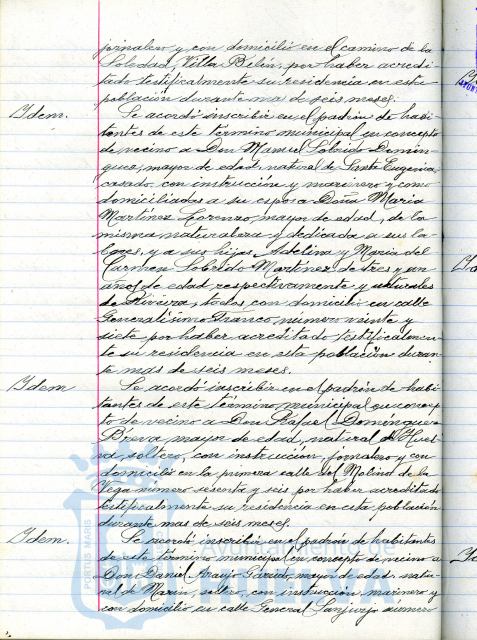 jornalero y con domicilio en el camino de la
Soledad, Villa Belén, por haber acredi-
tado testificalmente su residencia en esta
población durante mas de seis meses.
Idem. Se acordó inscribir en el padrón de habi-
tantes de este término municipal en concepto
de vecino a Don Manuel Sobrido Domín-
guez, mayor de edad, natural de Santa Eugenia,
casado, con instrucción y marinero y como
domiciliadas a su esposa Doña Maria
Martínez Lorenzo, mayor de edad, de la
misma naturaleza y dedicada a sus la-
bores, y a sus hijas Adelina y Maria del
Carmen Sobrido Martínez de tres y un
años de edad respectivamente y naturales
de Riveira, todos con domicilio en calle
Generalísimo Franco número veinte y
siete por haber acreditado testificalmen-
te su residencia en esta población duran-
te mas de seis meses.
Idem Se acordó inscribir en el padrón de habi-
tantes de este término municipal en concep-
to de vecino a Don Rafael Domínguez
Breva mayor de edad, natural de Huel-
va, soltero, con instrucción, jornalero y con
domicilio en la primera calle del Molino de la
Vega número sesenta y seis por haber acreditado
testificalmente su residencia en esta población
durante mas de seis meses.
Idem. Se acordó inscribir en el padrón de habitantes
de este término municipal en concepto de vecino a
Don Daniel Araujo Garrido, mayor de edad, natu-
ral de Marín, soltero, con instrucción, marinero y
con domicilio en calle General Sanjurjo número
PORTUS MARIS
Ayuntamiento de